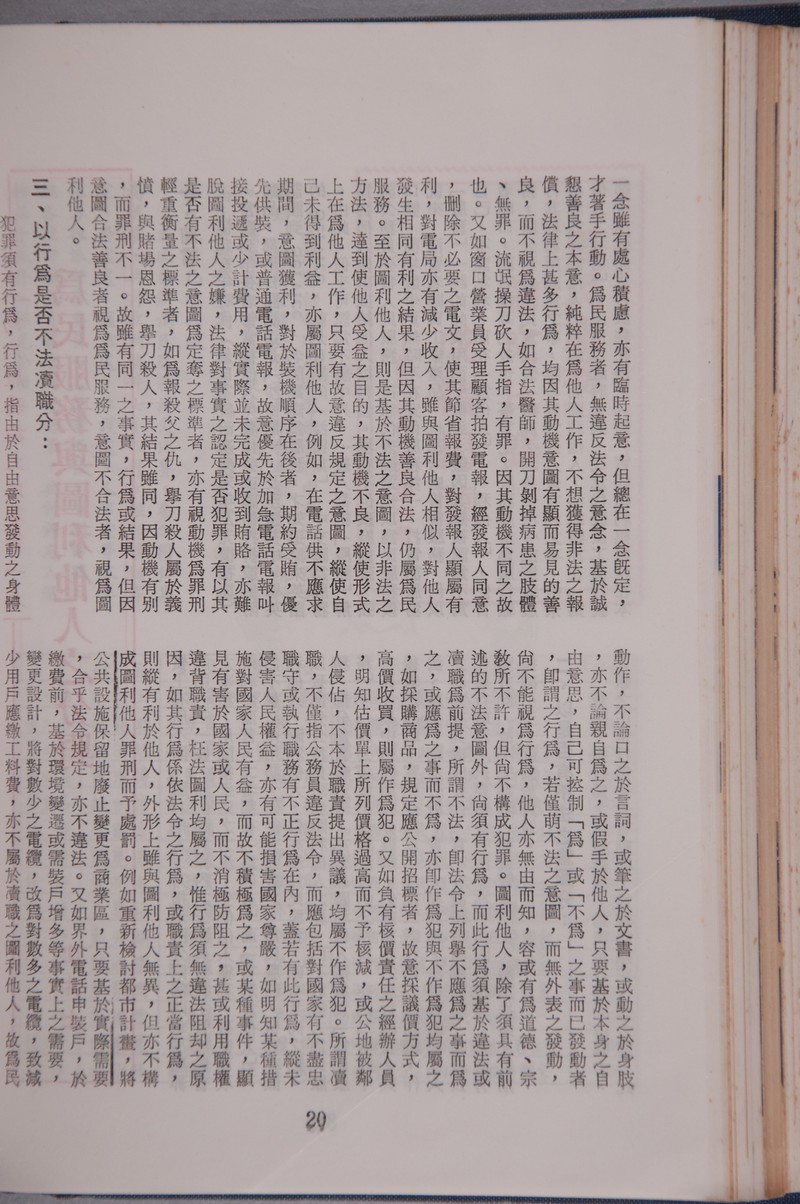 一念雖有處心積慮，亦有臨時起意，但總在一念旣定，
才著手行動。爲民服務者，無違反法令之意念，基於誠
懇善良之本意，純粹在爲他人工作，不想獲得非法之報
償，法律上甚多行爲，均因其動機意圖有顯而易見的善
良，而不視爲違法，如合法醫師，開刀剝掉病患之肢體
、無罪。流氓操刀砍人手指，有罪。因其動機不同之故
也。又如窗口營業員受理顧客拍發電報，經發報人同意
，刪除不必要之電文，使其節省報費，對發報人顯屬有
利，對電局亦有減少收入，雖與圖利他人相似，對他人
發生相同有利之結果，但因其動機善良合法，仍屬爲民
服務。至於圖利他人，則是基於不法之意圖，以非法之
方法，達到使他人受益之目的，其動機不良，縱使形式
上在爲他人工作，只要有故意違反規定之意圖，縱使自
己未得到利益，亦屬圖利他人，例如，在電話供不應求
期間，意圖獲利，對於裝機順序在後者，期約受賄，優
先供裝，或普通電話電報，故意優先於加急電話電報叫
接投遞或少計費用，縱實際並未完成或收到賄賂，亦難
脫圖利他人之嫌，法律對事實之認定是否犯罪，有以其
是否有不法之意圖爲定奪之標準者，亦有視動機爲罪刑
輕重衡量之標準者，如爲報殺父之仇，擧刀殺人屬於義
憤，與賭場恩怨，擧刀殺人，其結果雖同，因動機有別
，而罪刑不一。故雖有同一之事實，行爲或結果，但因
意圖合法善良者視爲爲民服務，意圖不合法者，視爲圖
利他人。
三、以行爲是否不法瀆職分：
犯罪須有行爲，行爲，指由於自由意思發動之身體
動作，不論口之於言詞，或筆之於文書，或動之於身肢
，亦不論親自爲之，或假手於他人，只要基於本身之自
由意思，自己可控制「爲」或「不爲」之事而已發動者
，卽謂之行爲，若僅萌不法之意圖，而無外表之發動，
尙不能視爲行爲，他人亦無由而知，容或有爲道德、宗
敎所不許，但尙不構成犯罪。圖利他人，除了須具有前
述的不法意圖外，尙須有行爲，而此行爲須基於違法或
瀆職爲前提，所謂不法，卽法令上列擧不應爲之事而爲
之，或應爲之事而不爲，亦卽作爲犯與不作爲犯均屬之
，如採購商品，規定應公開招標者，故意採議價方式，
高價收買，則屬作爲犯。又如負有核價責任之經辦人員
，明知估價單上所列價格過高而不予核減，或公地被鄰
人侵佔，不本於職責提出異議，均屬不作爲犯。所謂瀆
職，不僅指公務員違反法令，而應包括對國家有不盡忠
職守或執行職務有不正行爲在內，蓋若有此行爲，縱未
侵害人民權益，亦有可能損害國家尊嚴，如明知某種措
施對國家人民有益，而故不積極爲之，或某種事件，顯
見有害於國家或人民，而不消極防阻之，甚或利用職權
違背職責，枉法圖利均屬之，惟行爲須無違法阻却之原
因，如其行爲係依法令之行爲，或職責上之正當行爲，
則縱有利於他人，外形上雖與圖利他人無異，但亦不構
成圖利他人罪刑而予處罰。例如重新檢討都市計畫，將
公共設施保留地廢止變更爲商業區，只要基於實際需要
，合乎法令規定，亦不違法。又如界外電話申裝戶，於
繳費前，基於環境變遷或需裝戶增多等事實上之需要，
變更設計，將對數少之電纜，改爲對數多之電纜，致減
少用戶應繳工料費，亦不屬於瀆職之圖利他人，故爲民
29